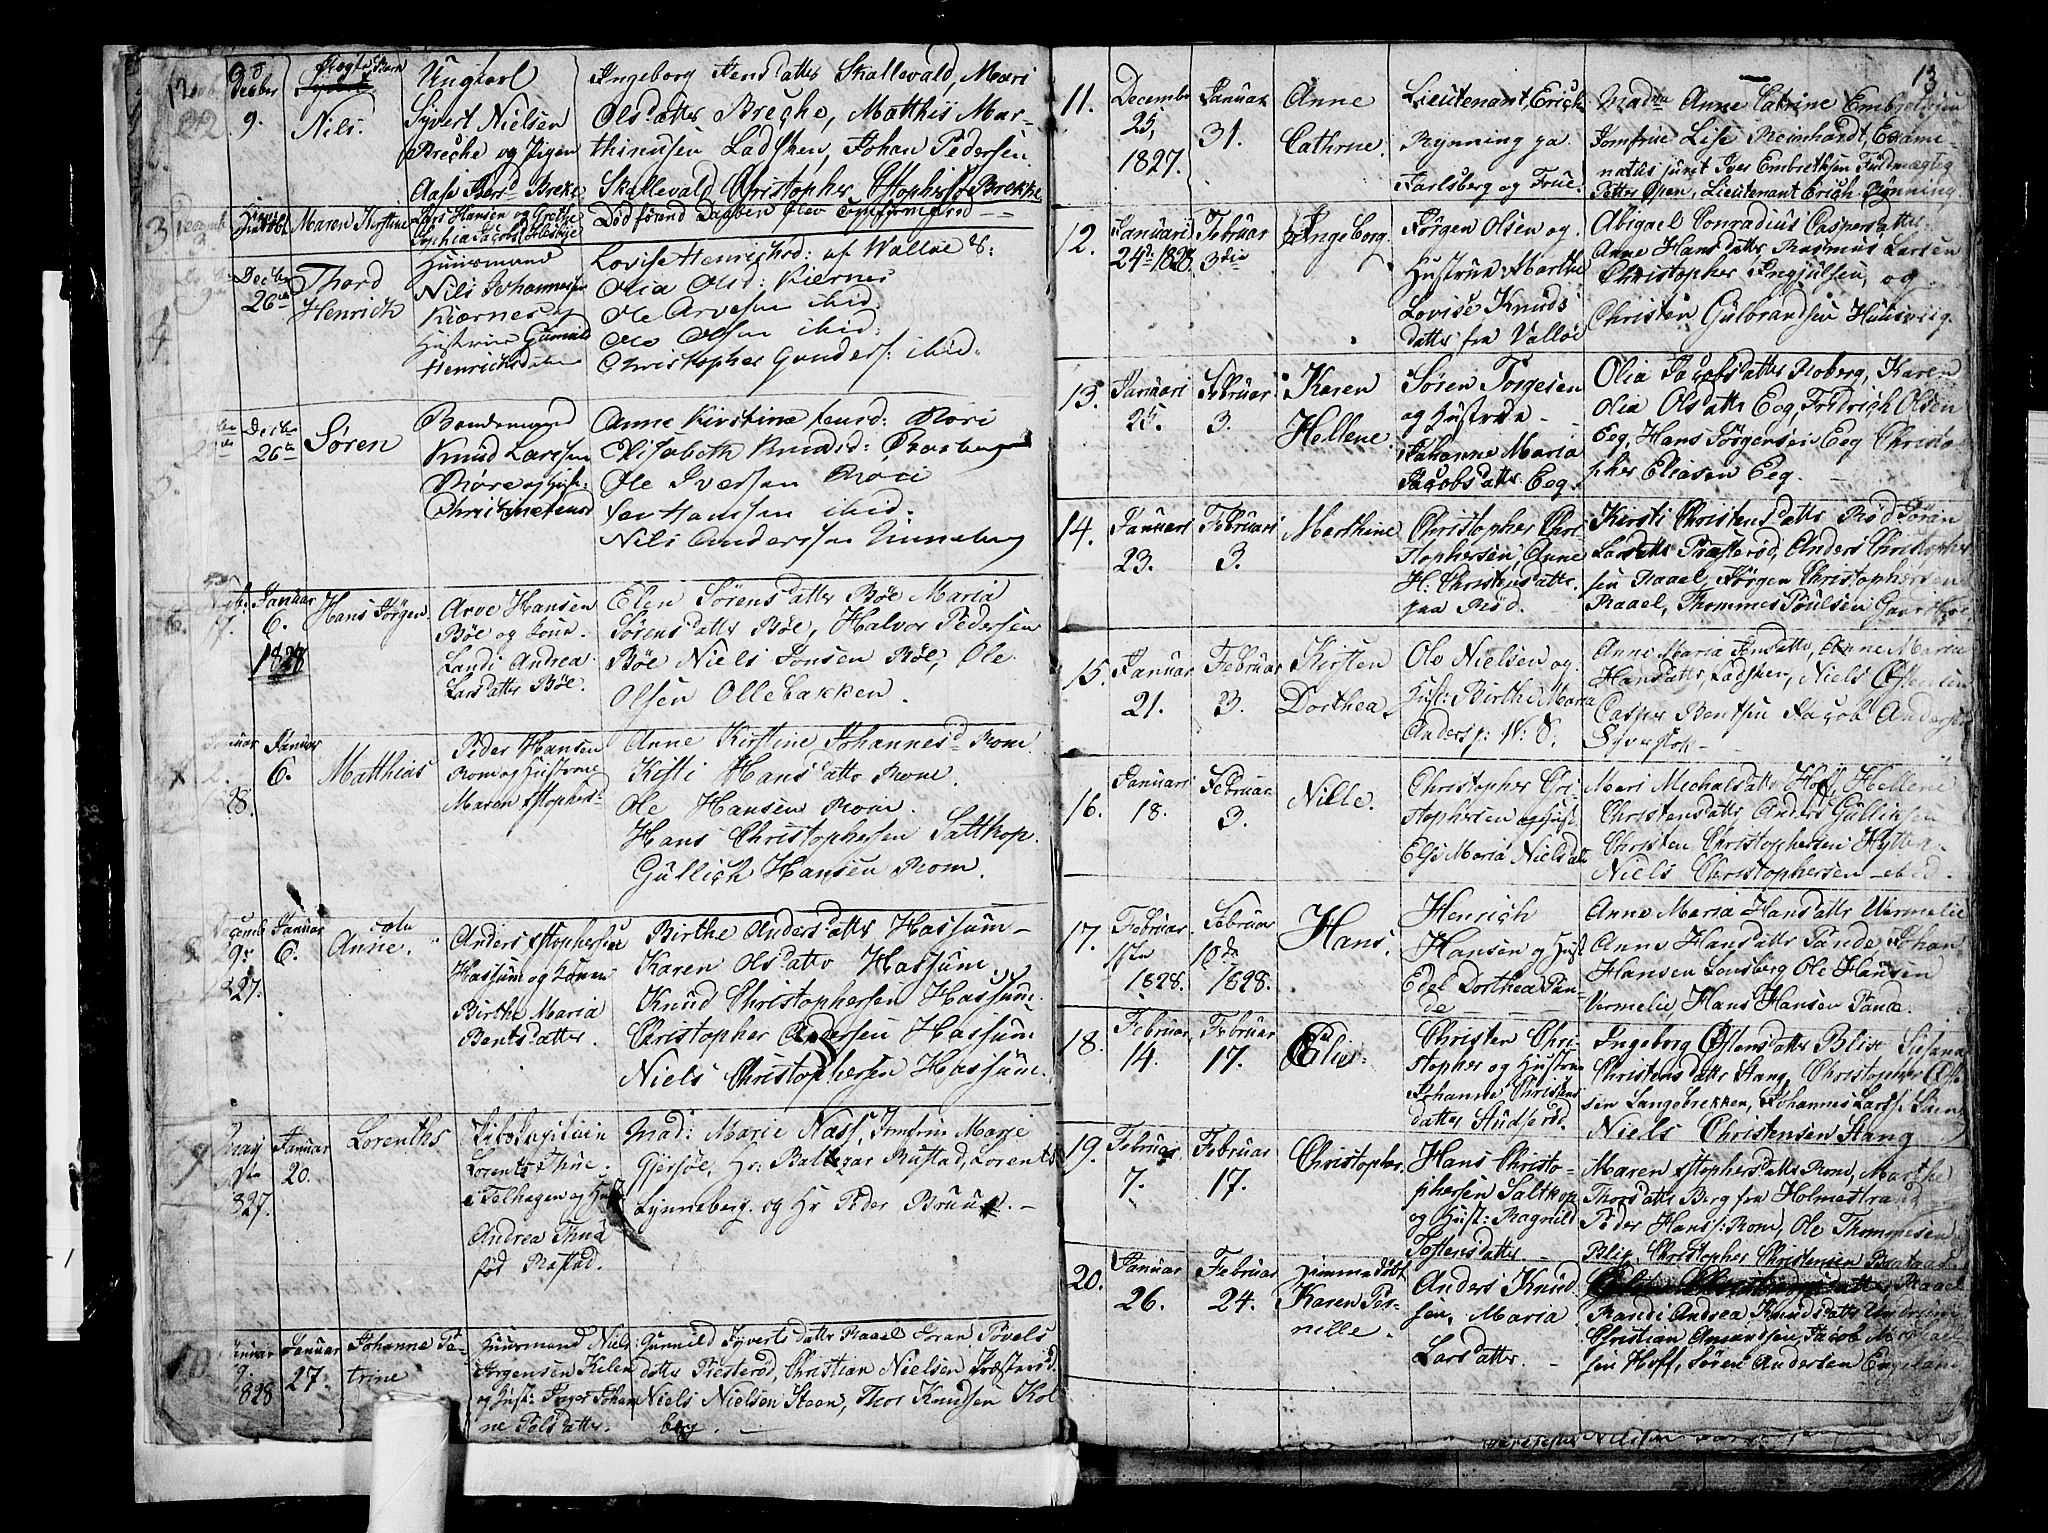 Decber
9.
uægte Barn
Nils.
Ungkarl
Syvert Nielsen
Breche og Pigen
Ingeborg Jensdatter Skallevald, Mari
Olsdatter Breche, Matthis Mar-
thinusen Ladshen, Johan Pedersen
Skallevald Christopher Brekke
3
Maren Kirstine
Lars Hansen og Grethe
4
Decbr
26de
Thord
Henrich
Huusmand
Nils Johannesen
Kiærnes og
Hustrue Gunnild
Henrichsdatter
Lovise Henrichsd: af Walløe
Olia Olsd: Kiernes
Ole Arvesen ibid.
Ole Olsen ibid:
Christopher Gunders: ibid.
5.
Decbr
26de
Sören
Bondemand
Knud Larssen
Röre og Hust:
Anne Kirstine
Elisabeth Knudsd:
Ole Iversen Röre
Hansen ibid.
Nils Anderssen Linneberg
6.
Januar
6.
1828
Hans Jörgen
Arve Hansen
Böe og Kone
Landi Andrea
Larsdatter Böe.
Elen Sörensdatter Böe Maria
Sörensdatter Böe, Halvor Pedersen
Böe Niels Jonsen Böe, Ole
Olsen Ollebakken.
Januar
2.
28.
Januar
6.
Matthias
Peder Hansen
Rom og Hustrue
Maren Stophersd:
Anne Kirstine Johannesd Rom
Kisti Hansdatter Rom.
Ole Hansen Rom.
Hans Christophersen Saltkop.
Gullich Hansen Rom.
8.
29.
1827.
Januar
6.
Anne.
Anders Stophersen
Hassum og Konen
Birthe Maria
Bentsdatter.
Birthe Andersdatter Hassum -
Karen Olsdatter Hassum.
Knud Christophersen Hassum.
Christopher Andersen Hassum
Niels Christophersen Hassum.
9
827.
Januar
20.
Lorenths
Lorents Thue
i Felhagen og Hust
Andrea Thue
föd Rustad.
Mad: Marie Nass, Jomfrue Marie
Gjersöe, Hr: Baltzar Rustad, Lorents
Lynneberg. og Hr Peder Bruun. -
10
Januar
9.
1828
Januar
27.
Johanne Pe-
trine
Huusmand Niels
Jörgensen Kilen
og Hust: Inger Johan
ne Polsdatter.
Gunnild Syvertsdatter Raael Joran Povels
datter Presteröd, Christian Nielsen
Niels Nielsen Haaen, Thor Knudsen Kol
berg. -
13
11.
Decembr
25,
1827.
Januar
31.
Anne
Cathrine.
Lieutenant, Erich
Rynning paa
Jarlsberg og Frue.
Madme Anne Catrine Embretsen
Jomfrue Lise Reinhardt, Exami-
natus juris Iver Embrethsen Fuldmægtig
Petter Olsen, Lieutenant Erich Rynning
12.
Januarii
24d. 1828.
Februar
3die
Ingeborg.
Jörgen Olsen og
Hustrue: Marthe
Lovise Knuds
datter fra Valløe
Abigael Conradius Caspersdatter
Anne Hansdatter Rasmus Larsen
Christopher Ingjulsen, og
Christen Gulbrandsen Huusvig.
13.
Januari
25.
Februari
3.
Karen
Hellene
Sören Torgesen
og Hustrue -
Johanne Maria
Jacobsdatter Eeg.
Olia Jacobsdatter Roberg, Karen
Olia Olsdatter Eeg, Fridrich Olsen
Eeg, Hans Jörgensen Eeg Christo
pher Eliasen Eeg. -
14.
Januari
23.
Februari
3.
Marthine
Christopher Chri
stophersen, Anne
H. Christensdatter
paa Röd.
Kirsti Christensdatter Röd Joran
Larsdatter Præsteröd, Anders Christopher
sen Raael, Jörgen Christophersen
Raael, Thommes Poulsen
15.
Januar
21.
Februar
3.
Kirsten
Dorthea
Ole Nielsen og
Hust: Birthe Maria
Anne Maria Jensdatter, Anne Maria
Hansdatter, Ladsken, Niels
Casper Bentsen Jacob Anders
16.
Januari
18.
Februar
3.
Nille.
Christopher Chri
stophersen og Hust
Else Maria Nielsdatter
Mari Michalsdatter Hoff, Hellene
Christensdatter Anders Gulliksen
Christen Christophersen Hytten
Niels Christophersen ibid.
17.
Februar
1828.
Februar
10de
1828.
Hans.
Henrich
Hansen og Hust
Edel Dorthea Pan-
de -
Anne Maria Hansdatter Vermelie
Anne Hansdatter Pande Johan
Hansen Lensberg Ole Hansen
Vermelie, Hans Hansen Pande.
18.
Februar
14.
Februar
17.
Elias.
Christen Chri-
stopher og Hustrue
Johanne Christens
datter
Ingeborg Östensdatter Blix Susana
Christensdatter Hang, Christopher
sen Langebrekken, Johannes Lars:
Niels Christensen Hang
19.
Februar
7.
Februar
17.
Christopher.
Hans Christo-
phersen Saltkop
og Hust: Ragnild
Tostensdatter -
Maren Stophersdatter Rom, Marthe
Thorsdatter Berg fra Holmestrand
Peder Hans: Rom, Ole Thommesen
Blix, Christopher Christensen
20.
Januar
26.
Februar
24.
hjemmedöbt
Karen Per-
nille.
Anders Knud
sen, Maria
Larsdatter. -
Randi Andrea Knudsdatter
Christian Amundsen, Jacob Michael
sen Hoff, Sören Andersen